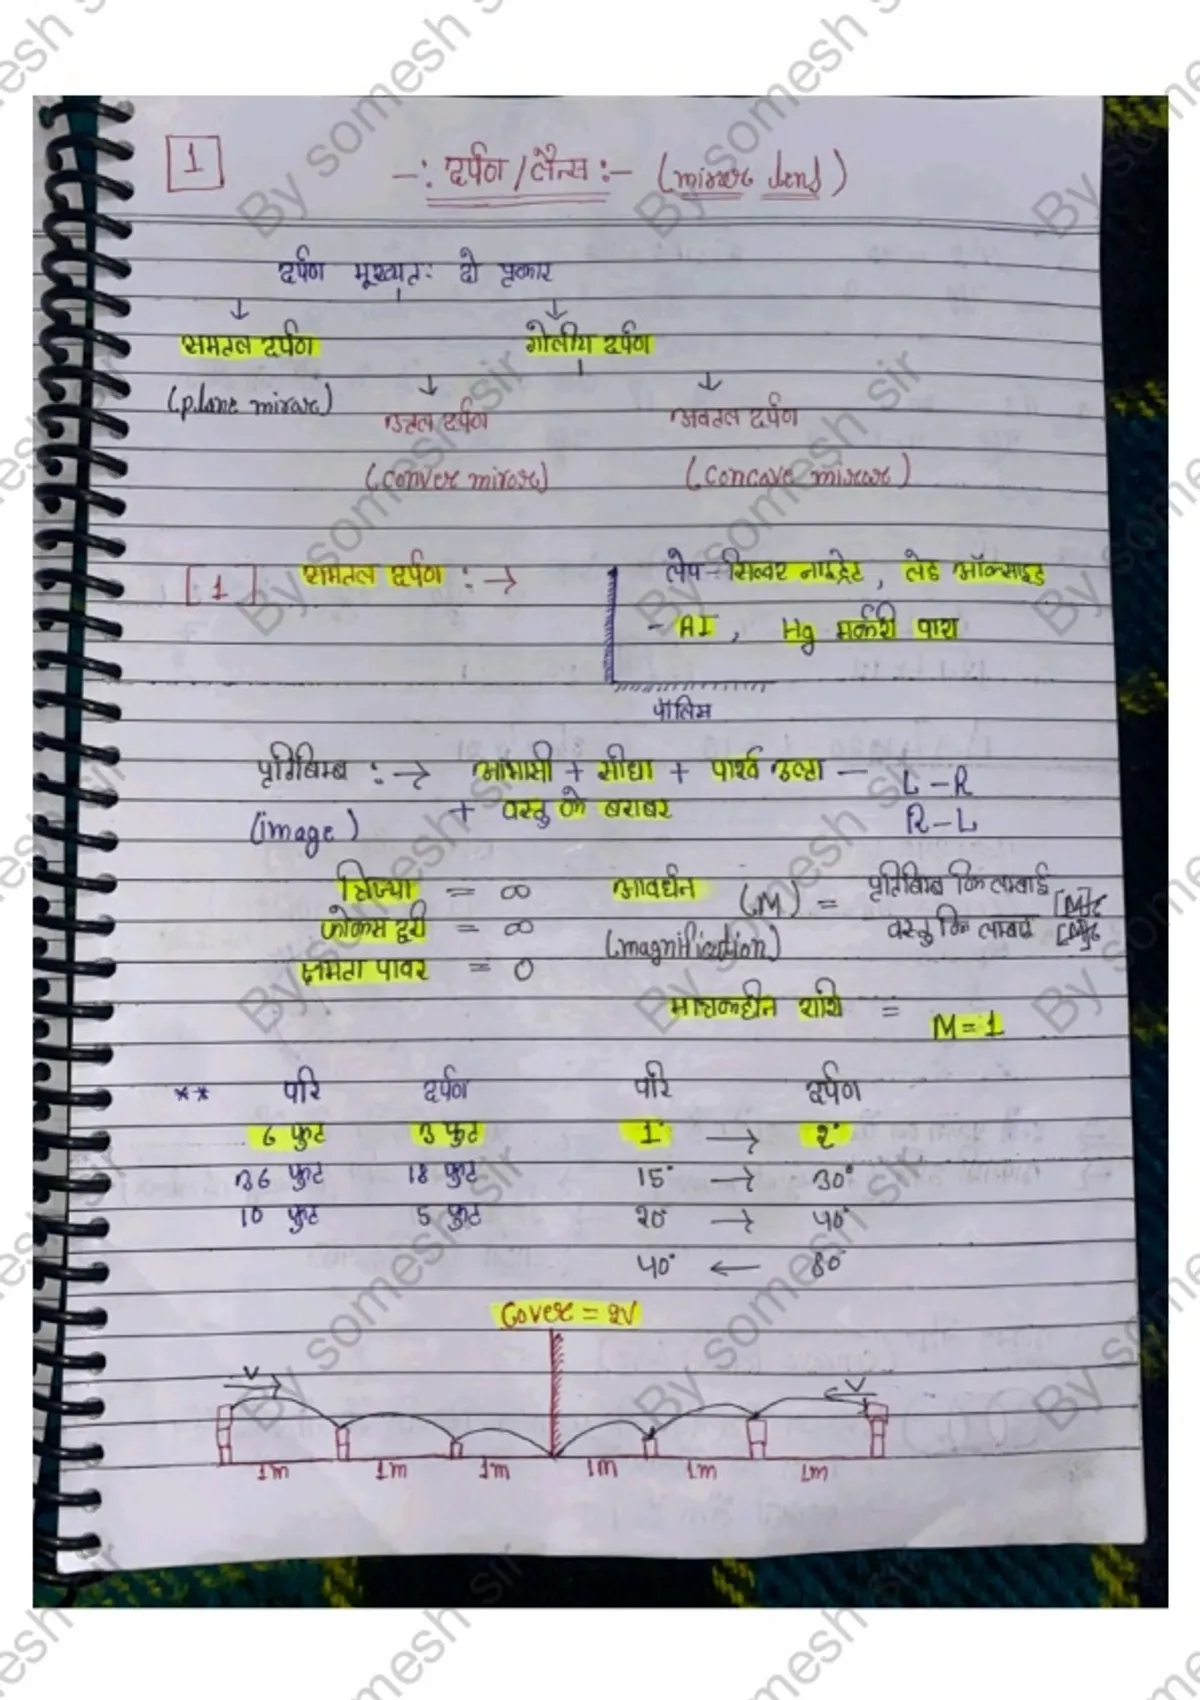 1
-: दर्पण / लैन्स :- (mirror lens)
दर्पण मुख्यत: दो प्रकार
समतल दर्पण गोलीय दर्पण
(plane mirror) उत्तल दर्पण अवतल दर्पण
(conver mirror) (concave mirror)
[1] समतल दर्पण :→ लेप - सिल्वर नाइट्रेट, लेड ऑक्साइड
- AI, Hg मर्करी पारा
पॉलिस
प्रतिबिम्ब :→ आभासी + सीधा + पार्श्व उल्टा — L-R
(image) + वस्तु के बराबर R-L
त्रिज्या = ∞ आवर्धन (M) = प्रतिबिम्ब कि लम्बाई
फोकस दूरी = ∞ (magnification) वस्तु कि लम्बाई
क्षमता पावर = 0
मात्रकहीन राशि = M=1
** परि दर्पण परि दर्पण
6 फुट 3 फुट 1° → 2°
36 फुट 18 फुट 15° → 30°
10 फुट 5 फुट 20° → 40°
40° ← 80°
Cover = 2V
V V
1m 1m 1m 1m 1m 1m
By somesh sir